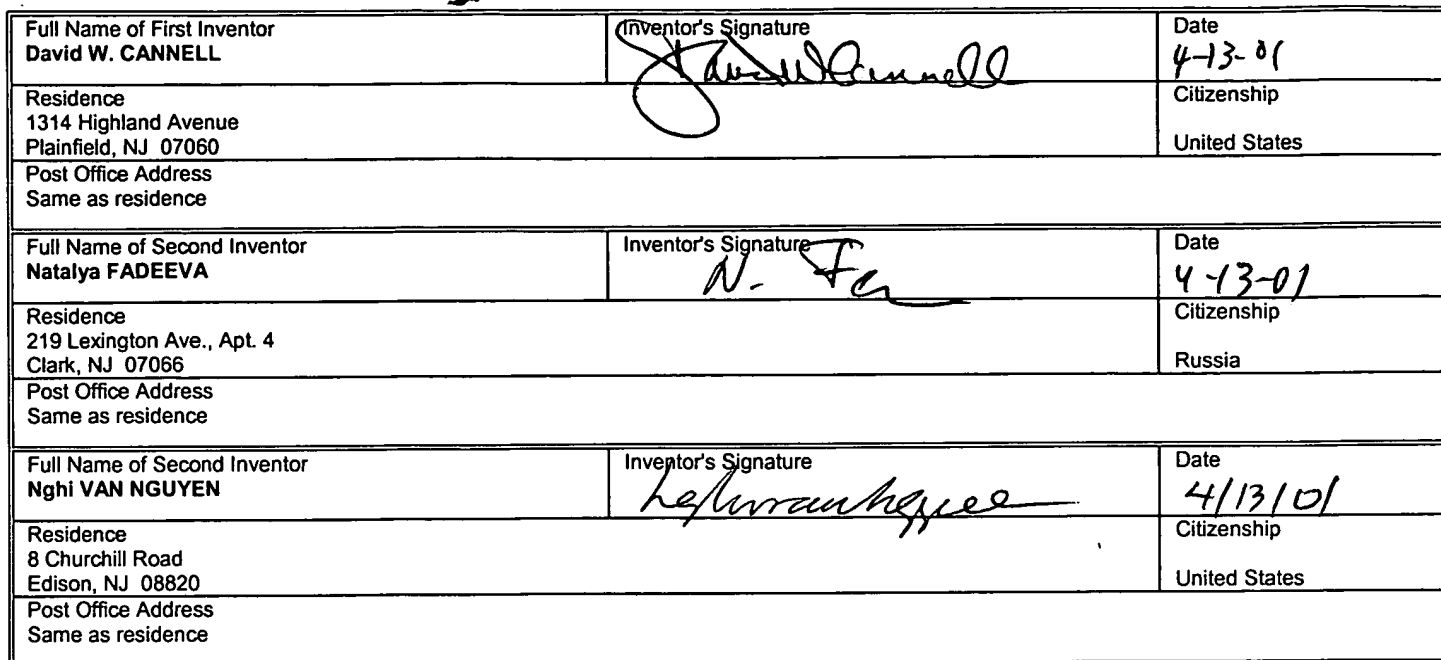 Full Name of First Inventor
David W. CANNELL
Inventor's Signature
David W Cannell
Date
4-13-01
Residence
1314 Highland Avenue
Plainfield, NJ 07060
Citizenship
United States
Post Office Address
Same as residence
Full Name of Second Inventor
Natalya FADEEVA
Inventor's Signature
N. Fa
Date
4-13-01
Residence
219 Lexington Ave., Apt. 4
Clark, NJ 07066
Citizenship
Russia
Post Office Address
Same as residence
Full Name of Second Inventor
Nghi VAN NGUYEN
Inventor's Signature
Date
4/13/01
Residence
8 Churchill Road
Edison, NJ 08820
Citizenship
United States
Post Office Address
Same as residence